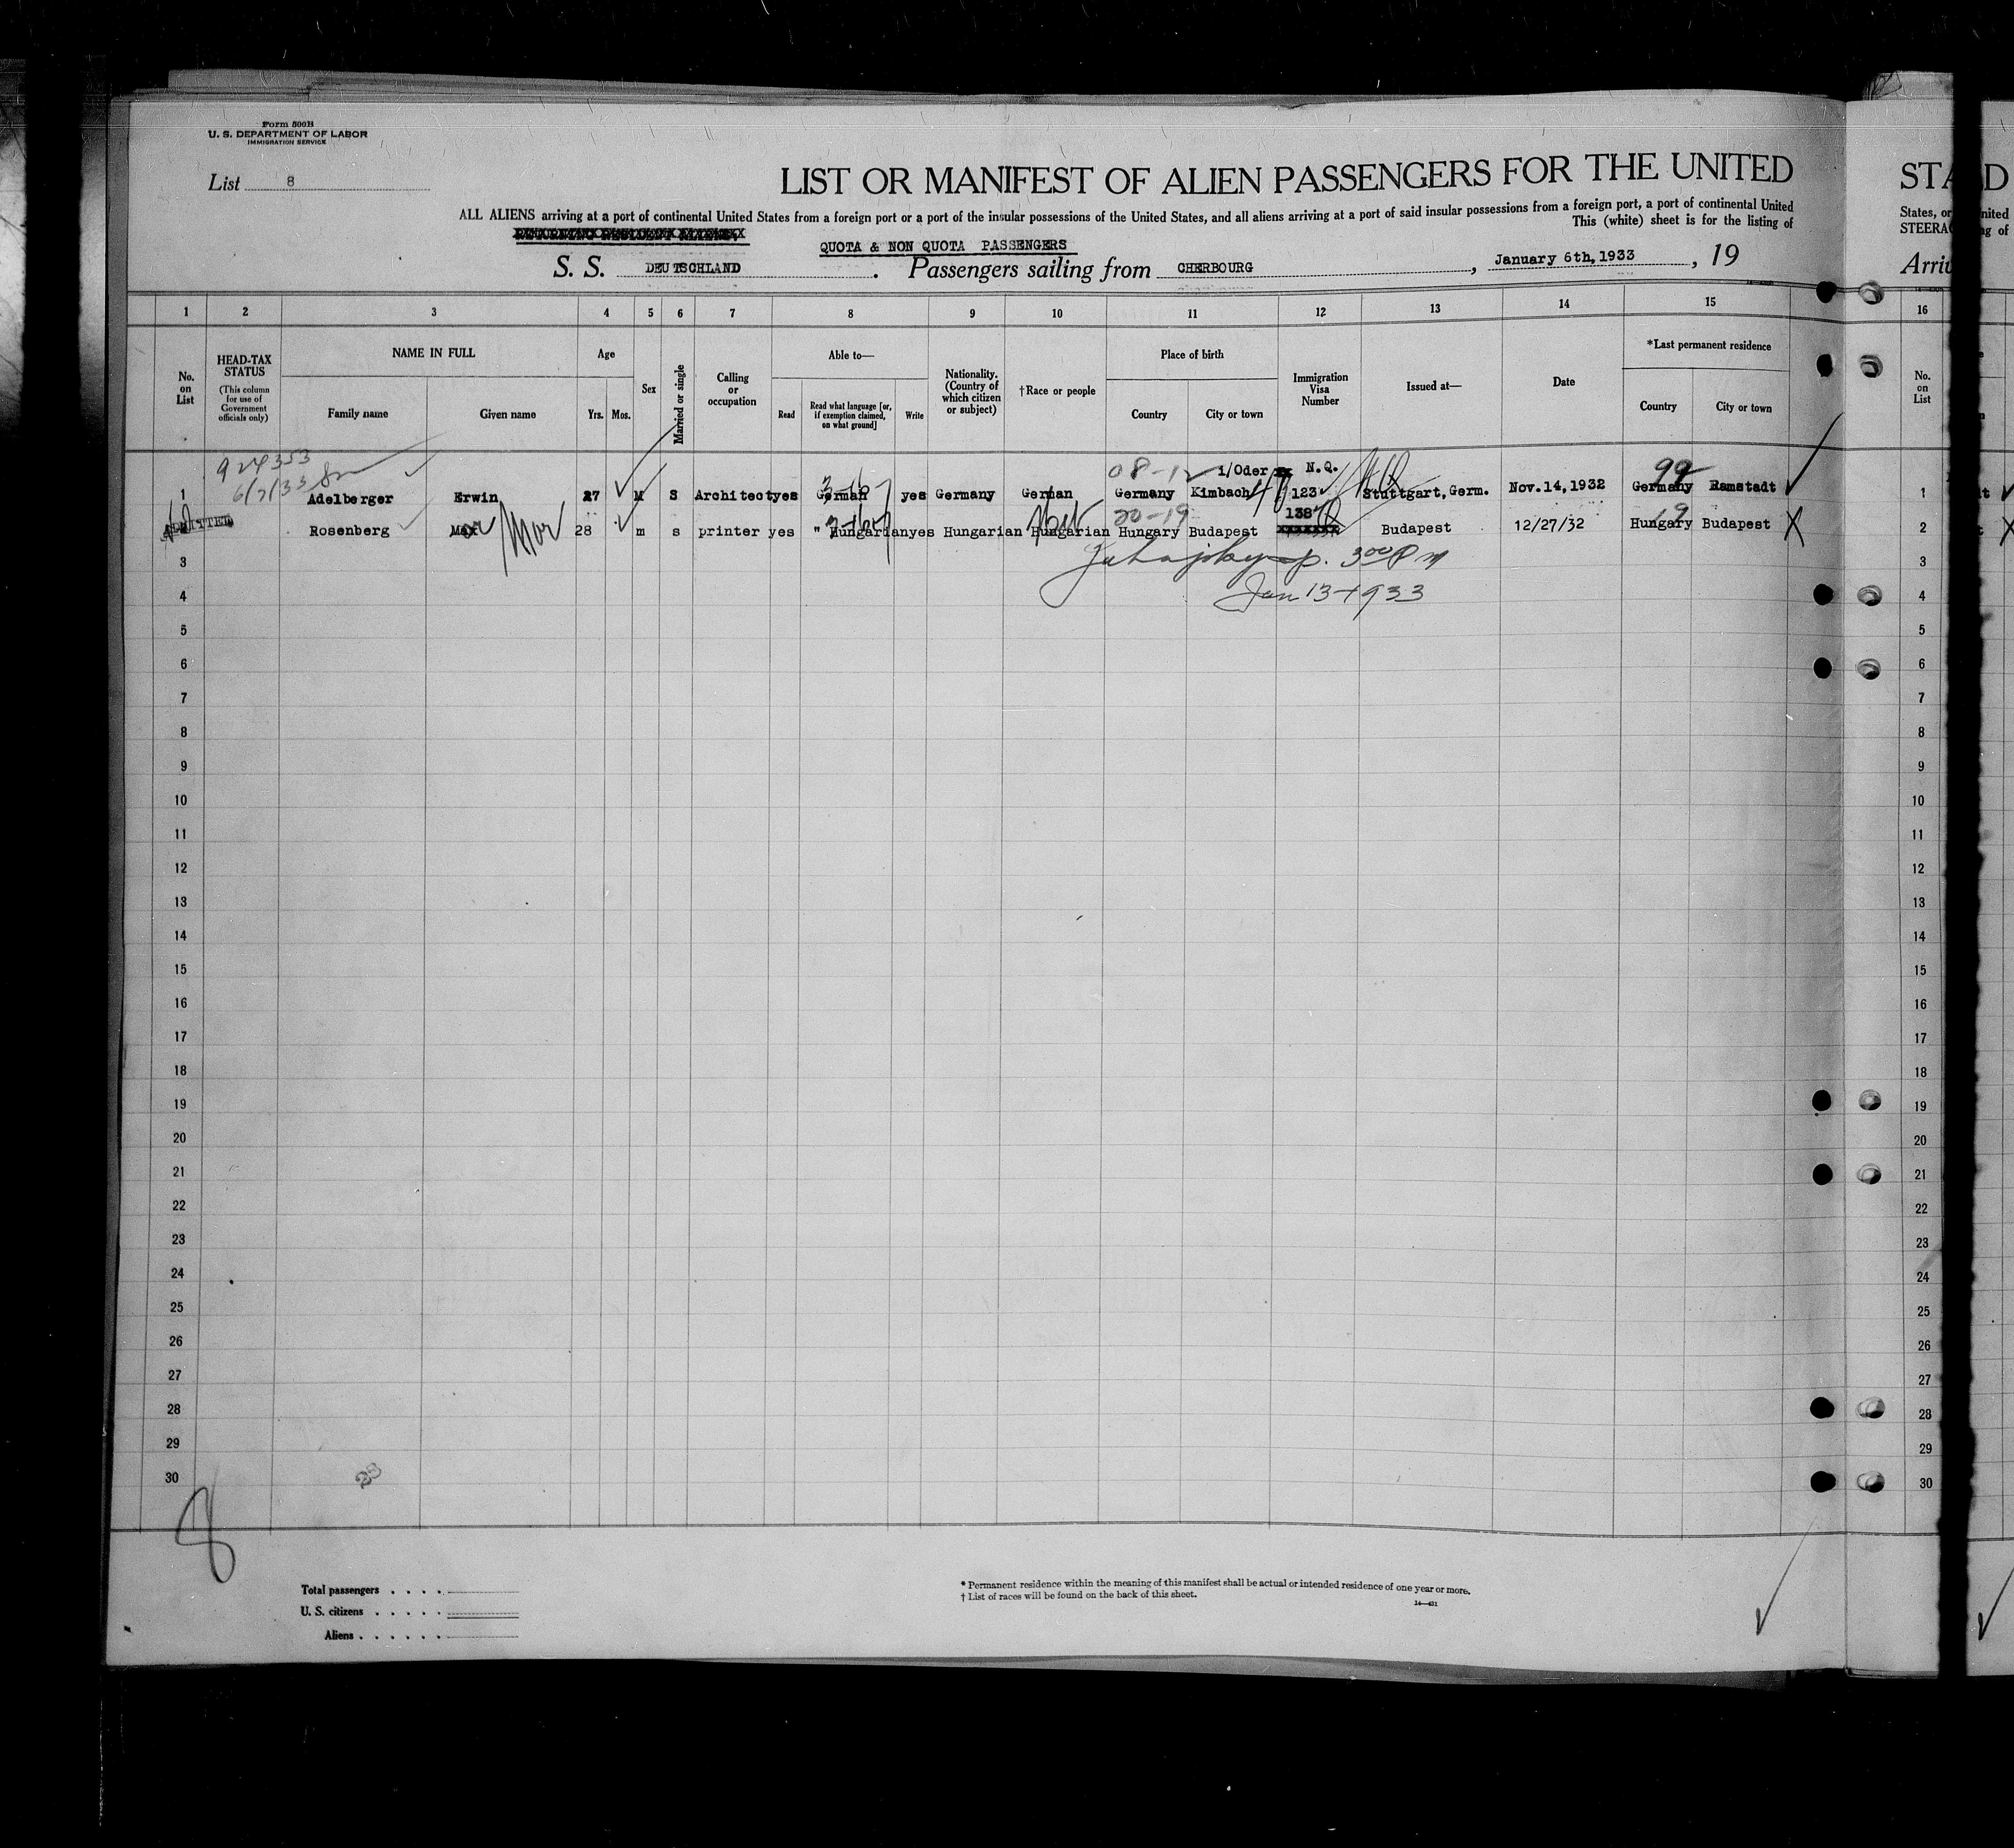 Form 500B
U. S. DEPARTMENT OF LABOR
IMMIGRATION SERVICE
List 8
LIST OR MANIFEST OF ALIEN PASSENGERS FOR THE UNITED
ALL ALIENS arriving at a port of continental United States from a foreign port or a port of the insular possessions of the United States, and all aliens arriving at a port of said insular possessions from a foreign port, a port of continental United
This (white) sheet is for the listing of
QUOTA & NON QUOTA PASSENGERS
S. S. DEUTSCHLAND . Passengers sailing from CHERBOURG , January 6th, 1933 , 19
STA D
States, or nited
STEERA g of
Arriv
1 2 3 4 5 6 7 8 9 10 11 12 13 14 15 16
No. on List
HEAD-TAX STATUS (This column for use of Government officials only)
NAME IN FULL
Family name Given name
Age
Yrs. Mos.
Sex
Married or single
Calling or occupation
Able to—
Read
Read what language [or, if exemption claimed, on what ground]
Write
Nationality. (Country of which citizen or subject)
†Race or people
Place of birth
Country City or town
Immigration Visa Number
Issued at—
Date
*Last permanent residence
Country City or town
No. on List
924353
6/7/33
08-12 i/Oder N.Q. 99
1 Adelberger Erwin 27 M S Architect yes German yes Germany German Germany Kimbach 123 Stuttgart, Germ. Nov.14,1932 Germany Ramstadt 1
ADMITTED
20-19 138 19
Rosenberg Max 28 m s printer yes " Hungarian yes Hungarian Hungarian Hungary Budapest Budapest 12/27/32 Hungary Budapest X 2
3 3.00 P m 3
4 Jan 13-1933 4
5 5
6 6
7 7
8 8
9 9
10 10
11 11
12 12
13 13
14 14
15 15
16 16
17 17
18 18
19 19
20 20
21 21
22 22
23 23
24 24
25 25
26 26
27 27
28 28
29 29
30 30
8
Total passengers . . . .
U. S. citizens . . . . .
Aliens . . . . . .
* Permanent residence within the meaning of this manifest shall be actual or intended residence of one year or more.
† List of races will be found on the back of this sheet.
14—431